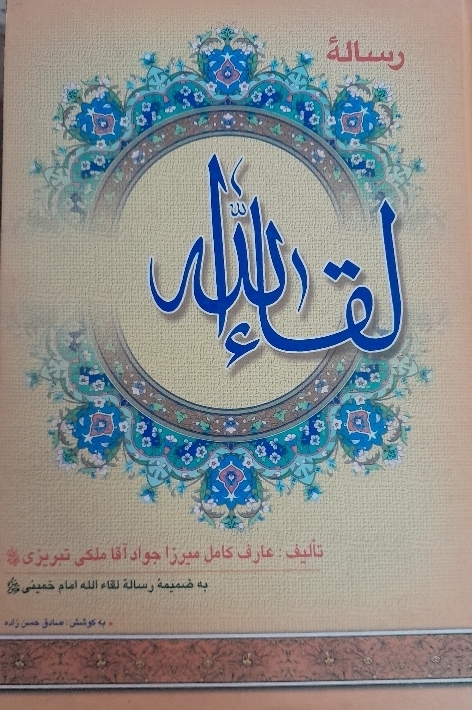 رسالهٔ
لقاءالله
تألیف: عارف کامل میرزا جواد آقا ملکی تبریزی
به ضمیمهٔ رسالهٔ لقاء الله امام خمینی
به کوشش: صادق حسن زاده